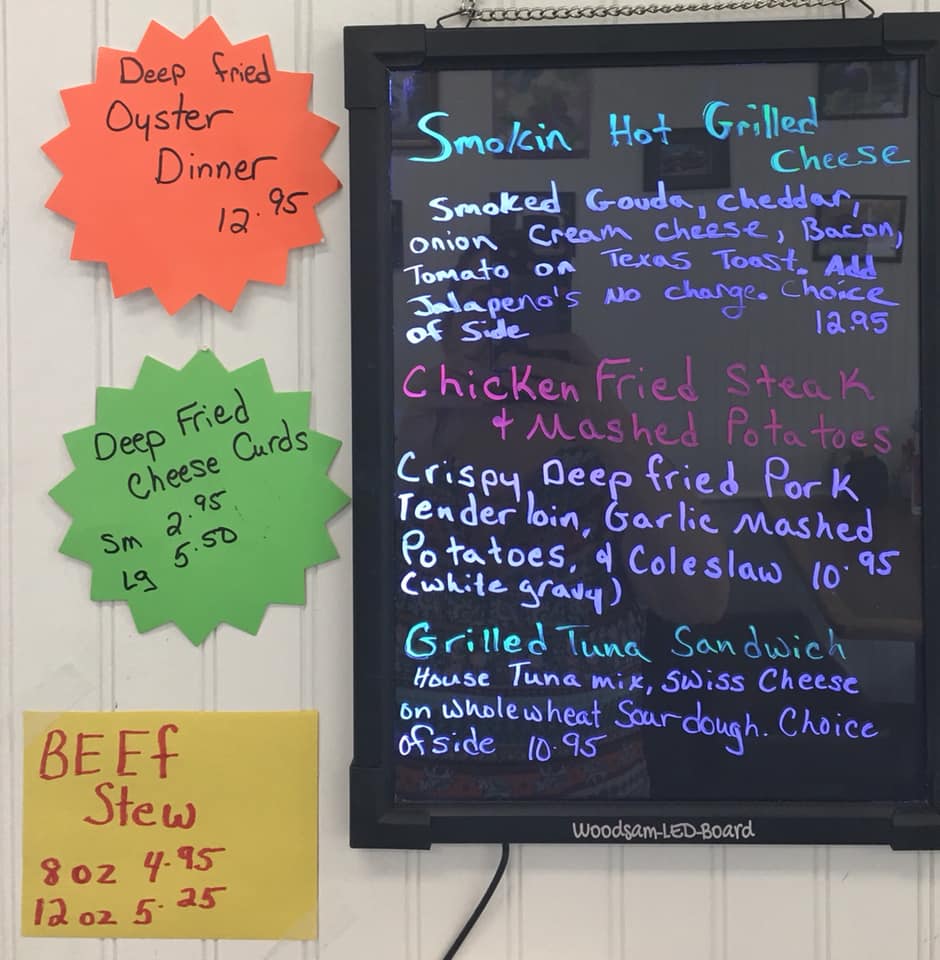 Deep fried
Oyster
Dinner
12.95
Deep Fried
Cheese Curds
Sm 2.95
Lg 5.50
BEEf
Stew
8 oz 4.95
12 oz 5.25
Smokin Hot Grilled
Cheese
Smoked Gouda, cheddar,
onion Cream cheese, Bacon,
Tomato on Texas Toast. Add
Jalapeno's No charge. Choice
of Side 12.95
Chicken Fried Steak
& Mashed Potatoes
Crispy Deep fried Pork
Tender loin, Garlic Mashed
Potatoes, & Coleslaw 10.95
(white gravy)
Grilled Tuna Sandwich
House Tuna mix, Swiss Cheese
on whole wheat Sour dough. Choice
of side 10.95
Woodsam-LED-Board